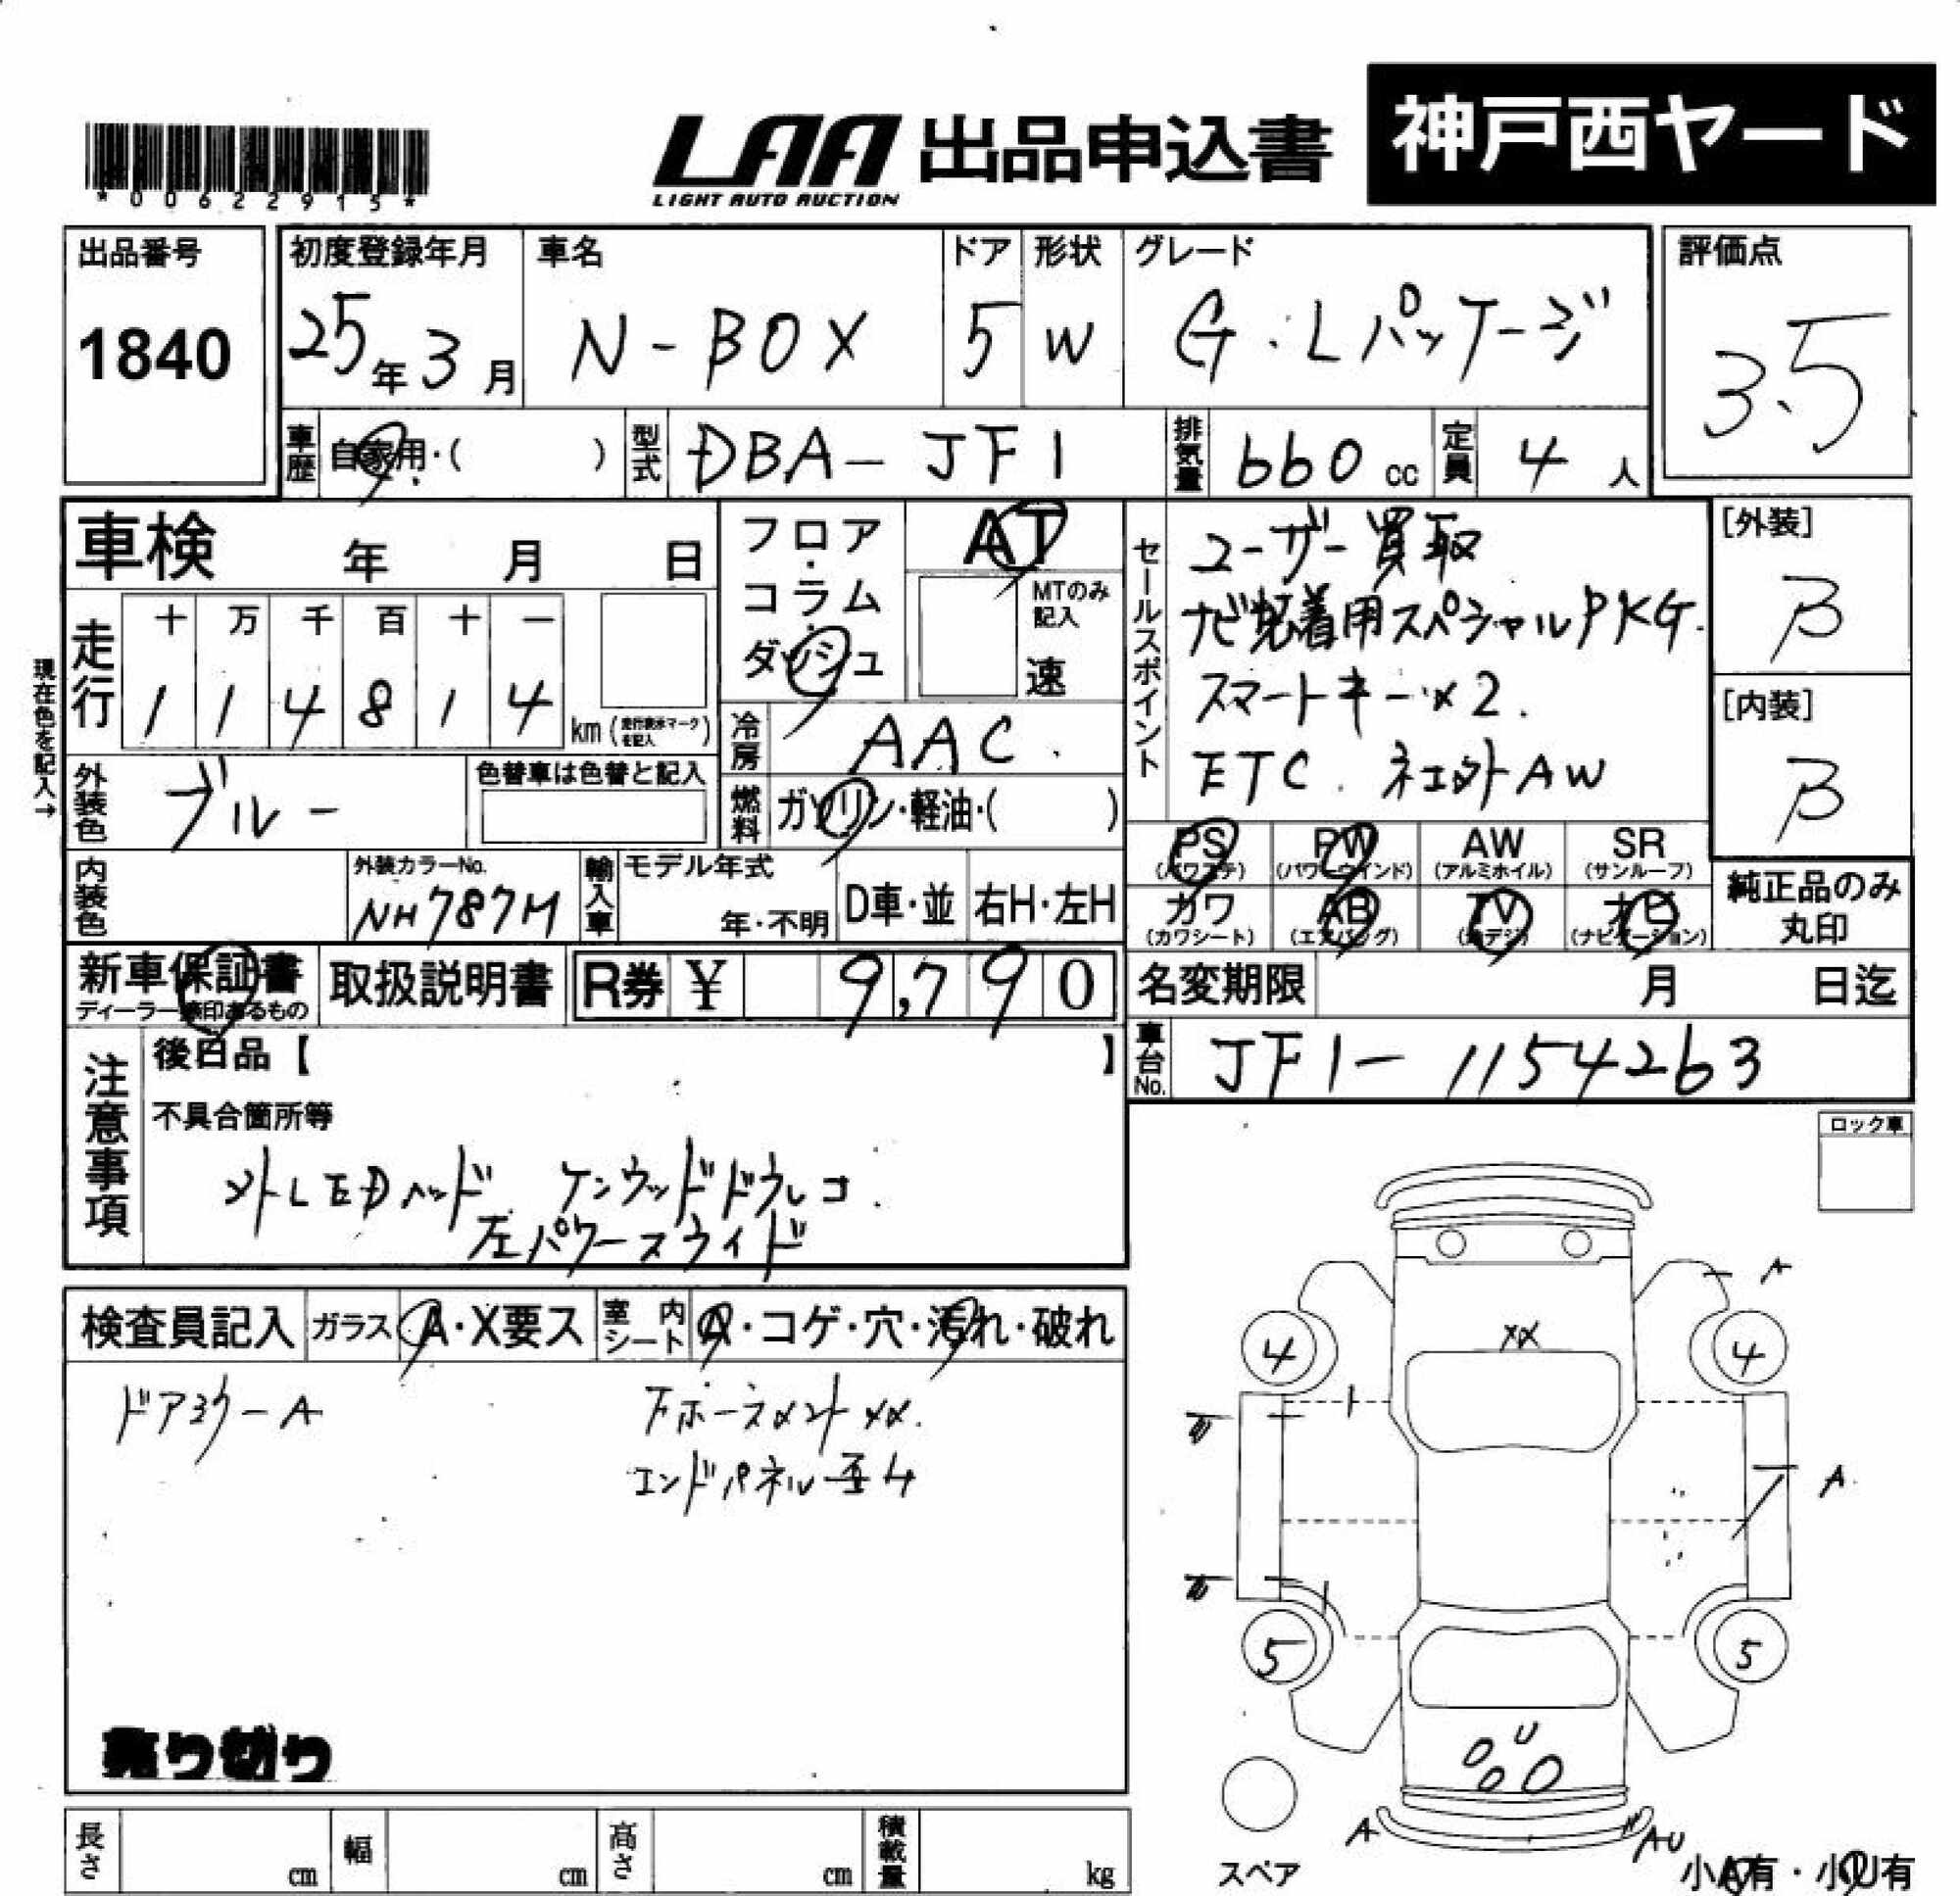 *00622915*
LAA 出品申込書
LIGHT AUTO AUCTION
神戸西ヤード
出品番号
1840
初度登録年月
25年3月
車名
N-BOX
ドア
5
形状
W
グレード
G・Lパッケージ
評価点
3.5
車歴 自家用・( )
型式 DBA-JF1
排気量 660cc
定員 4人
車検 年 月 日
現在色を記入→
走行
十 万 千 百 十 一
1 1 4 8 1 4 km (走行表示マークを記入)
フロア・コラム・ダッシュ
AT
MTのみ記入
速
冷房 AAC
燃料 ガソリン・軽油・( )
セールスポイント
ユーザー買取
ナビ装着用スペシャルPKG.
スマートキー×2.
ETC. 社外AW
[外装]
B
[内装]
B
外装色 ブルー
色替車は色替と記入
内装色
外装カラーNo.
NH787M
輸入車 モデル年式
年・不明
D車・並
右H・左H
PS (パワステ)
PW (パワーウインド)
AW (アルミホイル)
SR (サンルーフ)
カワ (カワシート)
AB (エアバッグ)
TV (地デジ)
ナビ (ナビゲーション)
純正品のみ丸印
新車保証書
ディーラー捺印あるもの
取扱説明書
R券 ¥ 9,790
名変期限 月 日迄
車台No. JF1-1154263
注意事項
後日品【 】
不具合箇所等
外LEDヘッド. ケンウッドドラレコ.
左パワースライド
ロック車
検査員記入
ガラス A・X要ス
室内シート A・コゲ・穴・汚れ・破れ
ドアミラーA
エンドパネル歪4
売り切り
A
XX
4
4
A
5
5
U
A
AU
スペア
小A有・小U有
長さ cm
幅 cm
高さ cm
積載量 kg